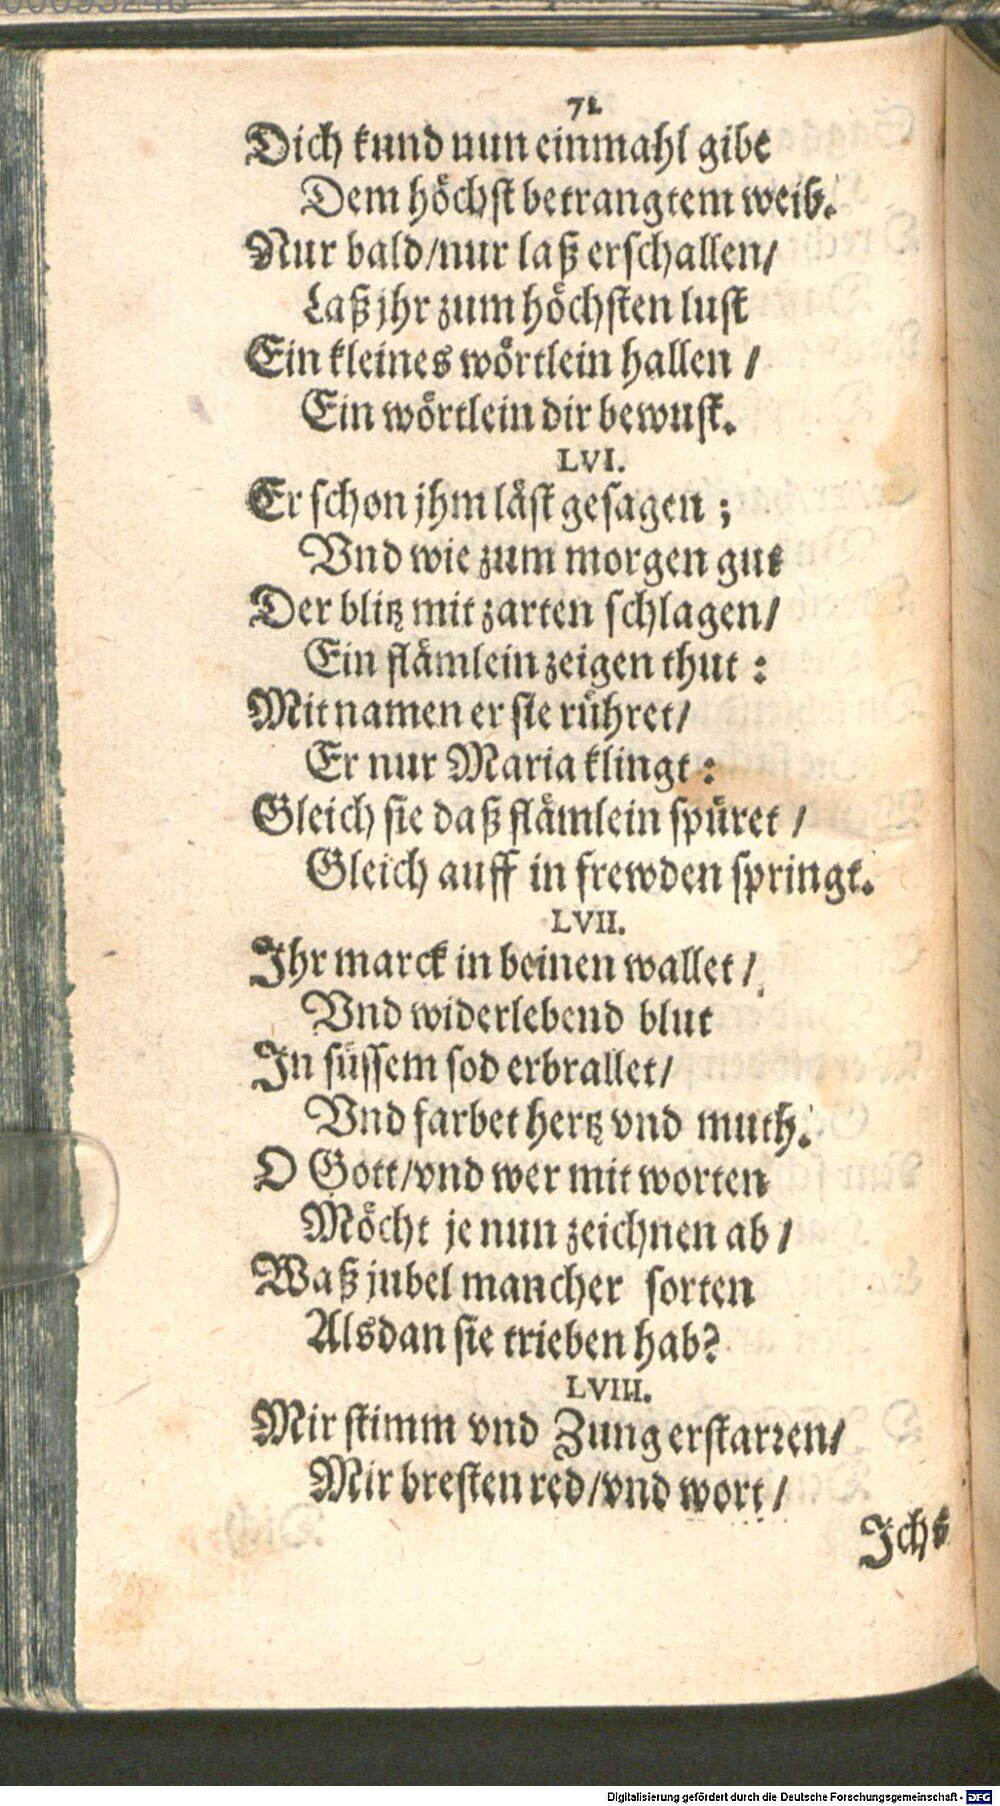 72
Dich kund nun einmahl gibt
Dem höchst betrangtem weib.
Nur bald/nur laß erschallen/
Laß jhr zum höchsten lust
Ein kleines wörtlein hallen /
Ein wörtlein dir bewust.
LVI.
Er schon jhm läst gesagen ;
Vnd wie zum morgen gut
Der blitz mit zarten schlagen/
Ein flämlein zeigen thut :
Mit namen er sie rühret/
Er nur Maria klingt :
Gleich sie daß flämlein spüret /
Gleich auff in frewden springt.
LVII.
Ihr marck in beinen wallet /
Vnd widerlebend blut
In süssem sod erbrallet/
Vnd farbet hertz vnd muth.
O Gott/vnd wer mit worten
Möcht je nun zeichnen ab /
Waß jubel mancher sorten
Alsdan sie trieben hab?
LVIII.
Mir stimm vnd Zung erstarren/
Mir bresten red/vnd wort /
Ichs
Digitalisierung gefördert durch die Deutsche Forschungsgemeinschaft - DFG